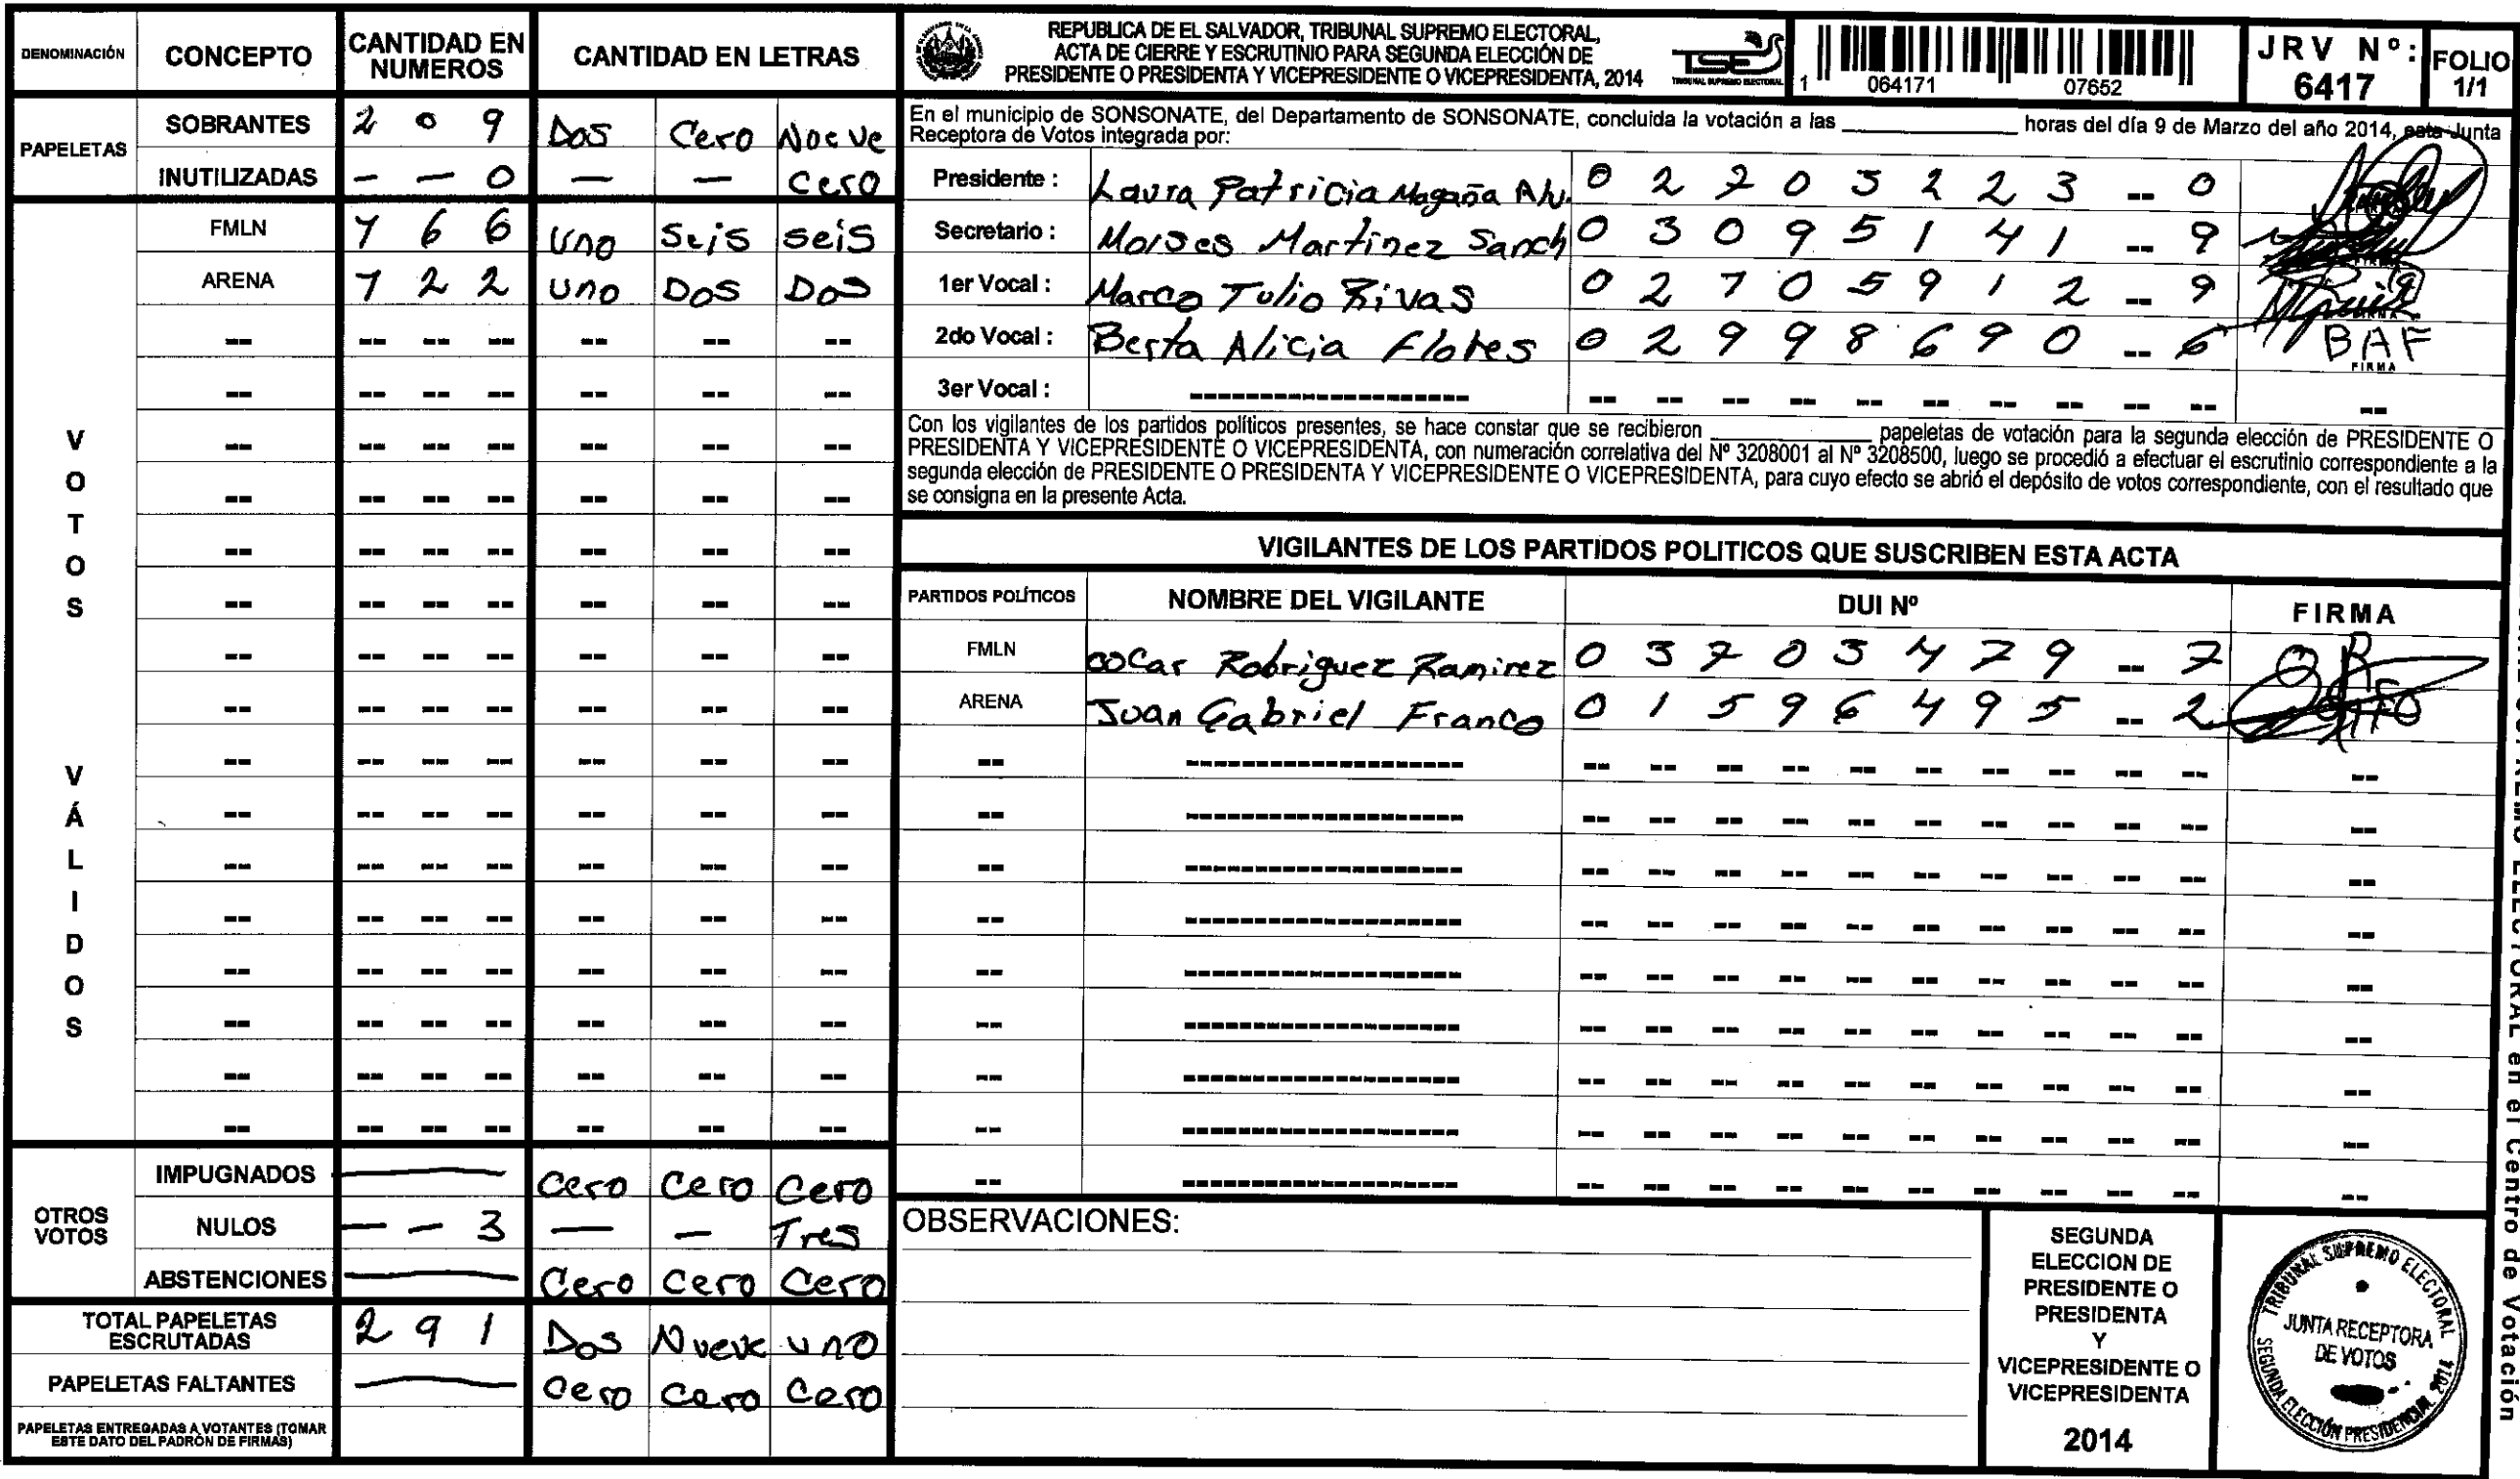 DENOMINACIÓN CONCEPTO CANTIDAD EN NUMEROS CANTIDAD EN LETRAS
PAPELETAS
SOBRANTES 2 0 9 Dos Cero Nueve
INUTILIZADAS - - 0 - - Cero
VOTOS VÁLIDOS
FMLN 1 6 6 Uno Seis seis
ARENA 1 2 2 uno Dos Dos
OTROS VOTOS
IMPUGNADOS — Cero Cero Cero
NULOS - - 3 - - Tres
ABSTENCIONES — Cero Cero Cero
TOTAL PAPELETAS ESCRUTADAS 2 9 1 Dos Nueve uno
PAPELETAS FALTANTES — Cero Cero Cero
PAPELETAS ENTREGADAS A VOTANTES (TOMAR
ESTE DATO DEL PADRÓN DE FIRMAS)
REPUBLICA DE EL SALVADOR, TRIBUNAL SUPREMO ELECTORAL,
ACTA DE CIERRE Y ESCRUTINIO PARA SEGUNDA ELECCIÓN DE
PRESIDENTE O PRESIDENTA Y VICEPRESIDENTE O VICEPRESIDENTA, 2014
TSE
TRIBUNAL SUPREMO ELECTORAL
1 064171 07652
JRV Nº: 6417
FOLIO 1/1
En el municipio de SONSONATE, del Departamento de SONSONATE, concluida la votación a las ____ horas del día 9 de Marzo del año 2014, esta Junta
Receptora de Votos integrada por:
Presidente : Laura Patricia Magaña Alv. 0 2 7 0 3 2 2 3 -- 0
Secretario : Moises Martinez Sanch 0 3 0 9 5 1 4 1 -- 9
1er Vocal : Marco Tulio Rivas 0 2 7 0 5 9 1 2 -- 9
2do Vocal : Berta Alicia Flores 0 2 9 9 8 6 9 0 -- 6 BAF
FIRMA
3er Vocal :
Con los vigilantes de los partidos políticos presentes, se hace constar que se recibieron ____ papeletas de votación para la segunda elección de PRESIDENTE O
PRESIDENTA Y VICEPRESIDENTE O VICEPRESIDENTA, con numeración correlativa del Nº 3208001 al Nº 3208500, luego se procedió a efectuar el escrutinio correspondiente a la
segunda elección de PRESIDENTE O PRESIDENTA Y VICEPRESIDENTE O VICEPRESIDENTA, para cuyo efecto se abrió el depósito de votos correspondiente, con el resultado que
se consigna en la presente Acta.
VIGILANTES DE LOS PARTIDOS POLITICOS QUE SUSCRIBEN ESTA ACTA
PARTIDOS POLÍTICOS NOMBRE DEL VIGILANTE DUI Nº FIRMA
FMLN Oscar Rodriguez Ramirez 0 3 7 0 3 4 7 9 -- 7 OR
ARENA Juan Gabriel Franco 0 1 5 9 6 4 9 5 -- 2
OBSERVACIONES:
SEGUNDA
ELECCION DE
PRESIDENTE O
PRESIDENTA
Y
VICEPRESIDENTE O
VICEPRESIDENTA
2014
TRIBUNAL SUPREMO ELECTORAL
JUNTA RECEPTORA
DE VOTOS
SEGUNDA ELECCIÓN PRESIDENCIAL 2014
SUPREMO ELECTORAL en el Centro de Votación